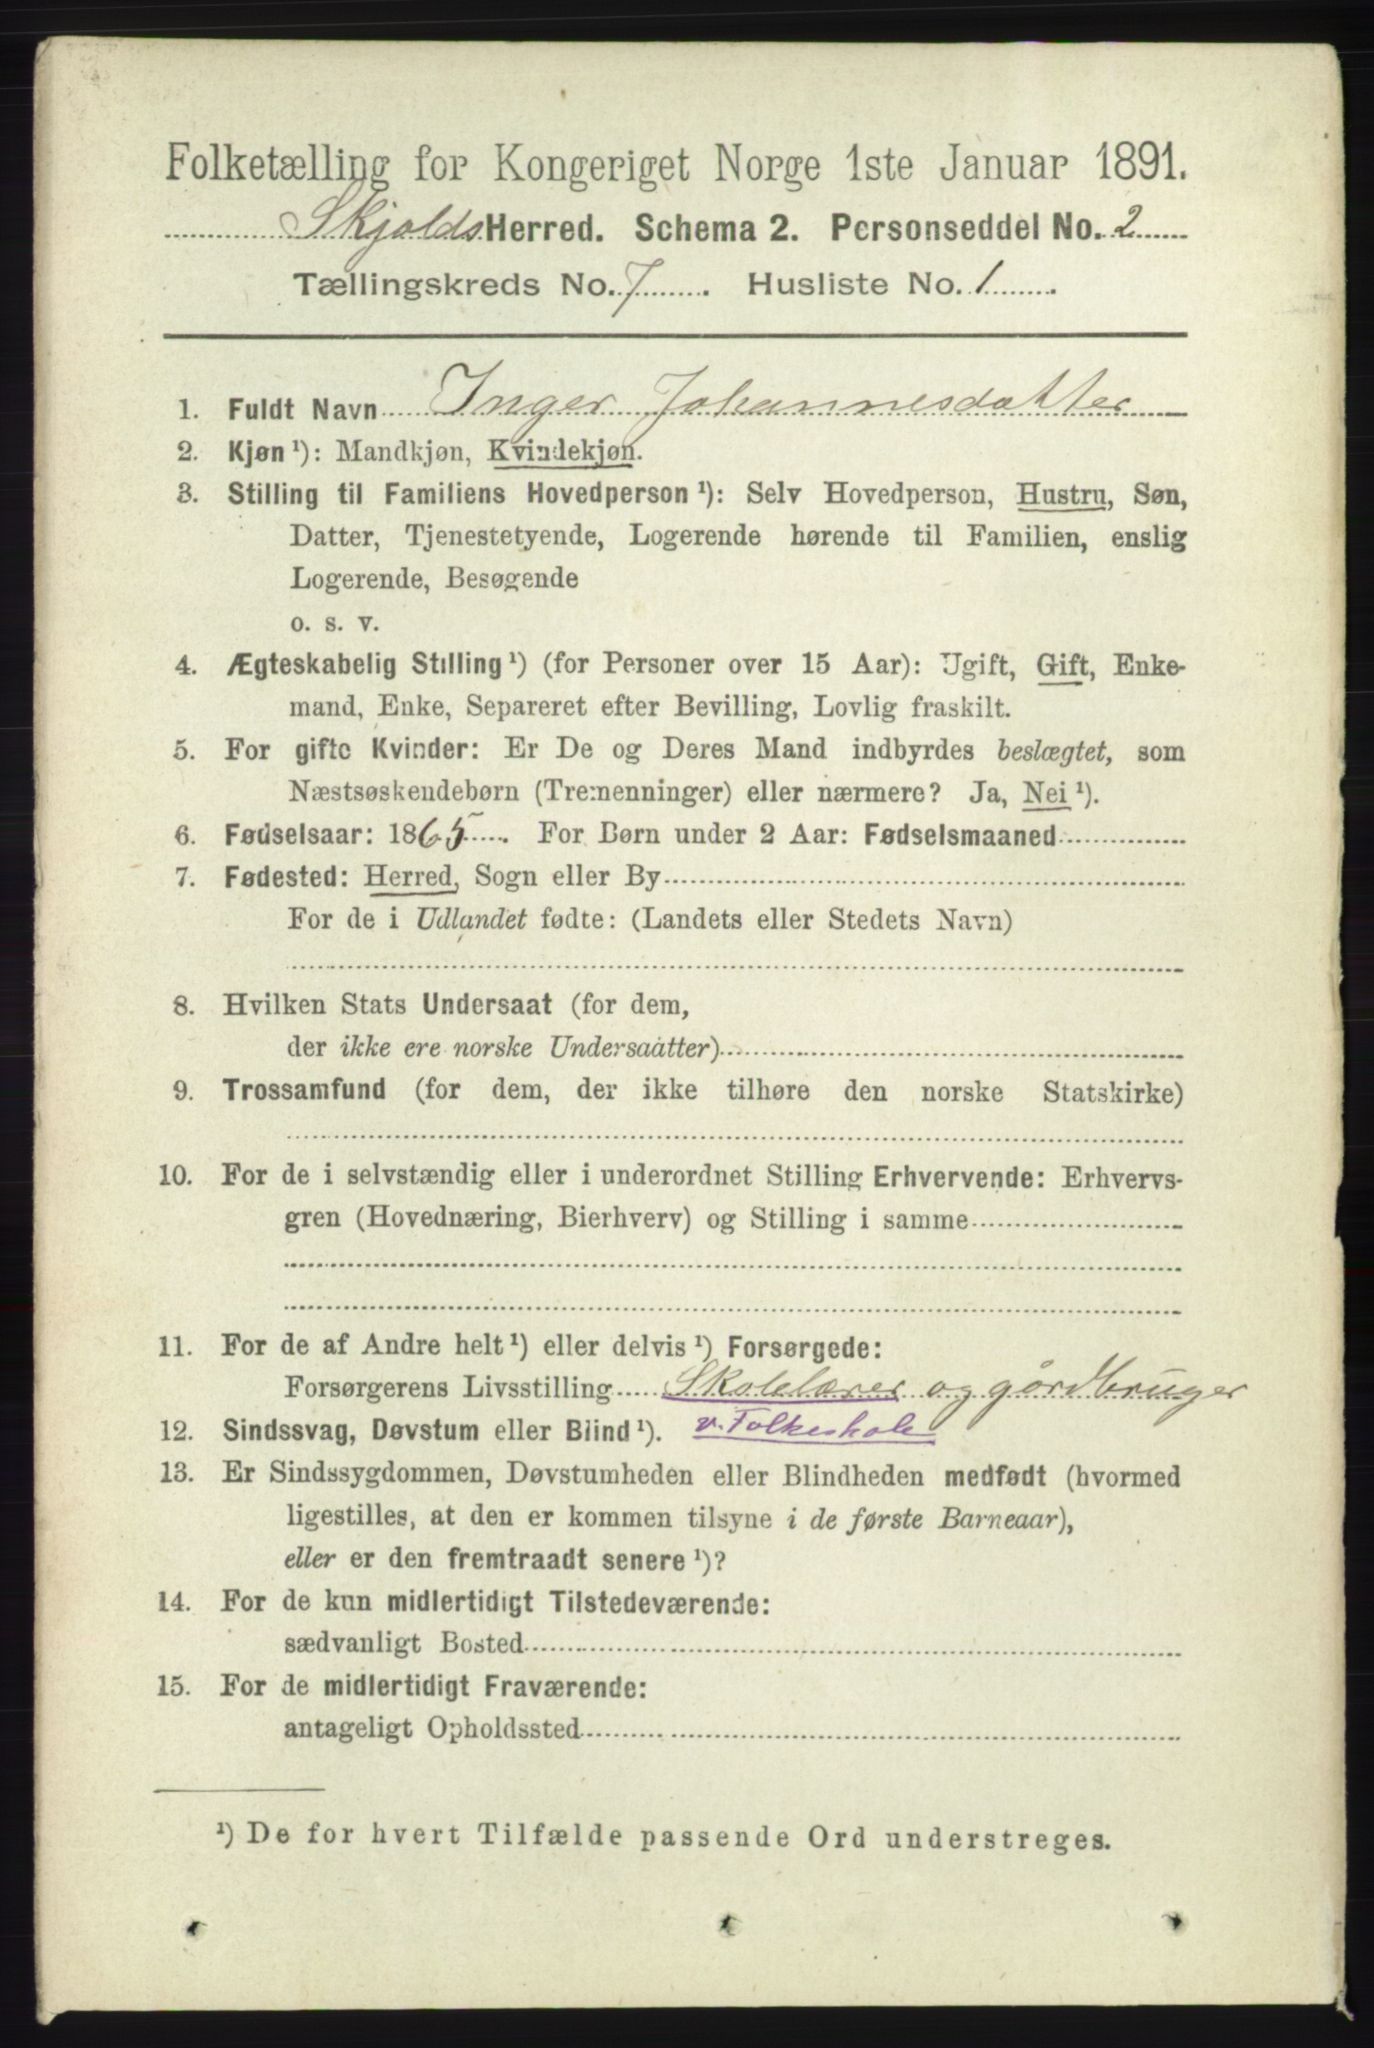 Folketælling for Kongeriget Norge 1ste Januar 1891.
Skjolds Herred. Schema 2. Personseddel No. 2
Tællingskreds No. 7. Husliste No. 1.
1. Fuldt Navn Inger Johannesdatter
2. Kjøn ¹): Mandkjøn, Kvindekjøn.
3. Stilling til Familiens Hovedperson ¹): Selv Hovedperson, Hustru, Søn,
Datter, Tjenestetyende, Logerende hørende til Familien, enslig
Logerende, Besøgende
o. s. v.
4. Ægteskabelig Stilling ¹) (for Personer over 15 Aar): Ugift, Gift, Enke-
mand, Enke, Separeret efter Bevilling, Lovlig fraskilt.
5. For gifte Kvinder: Er De og Deres Mand indbyrdes beslægtet, som
Næstsøskendebørn (Tremenninger) eller nærmere? Ja, Nei ¹).
6. Fødselsaar: 1865. For Børn under 2 Aar: Fødselsmaaned
7. Fødested: Herred, Sogn eller By
For de i Udlandet fødte: (Landets eller Stedets Navn)
8. Hvilken Stats Undersaat (for dem,
der ikke ere norske Undersaatter)
9. Trossamfund (for dem, der ikke tilhøre den norske Statskirke)
10. For de i selvstændig eller i underordnet Stilling Erhvervende: Erhvervs-
gren (Hovednæring, Bierhverv) og Stilling i samme
11. For de af Andre helt ¹) eller delvis ¹) Forsørgede:
Forsørgerens Livsstilling Skolelærer og gårdbruger
12. Sindssvag, Døvstum eller Blind ¹). v. Folkeskole
13. Er Sindssygdommen, Døvstumheden eller Blindheden medfødt (hvormed
ligestilles, at den er kommen tilsyne i de første Barneaar),
eller er den fremtraadt senere ¹)?
14. For de kun midlertidigt Tilstedeværende:
sædvanligt Bosted
15. For de midlertidigt Fraværende:
antageligt Opholdssted
¹) De for hvert Tilfælde passende Ord understreges.